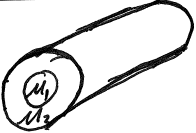 μ₁
μ₂